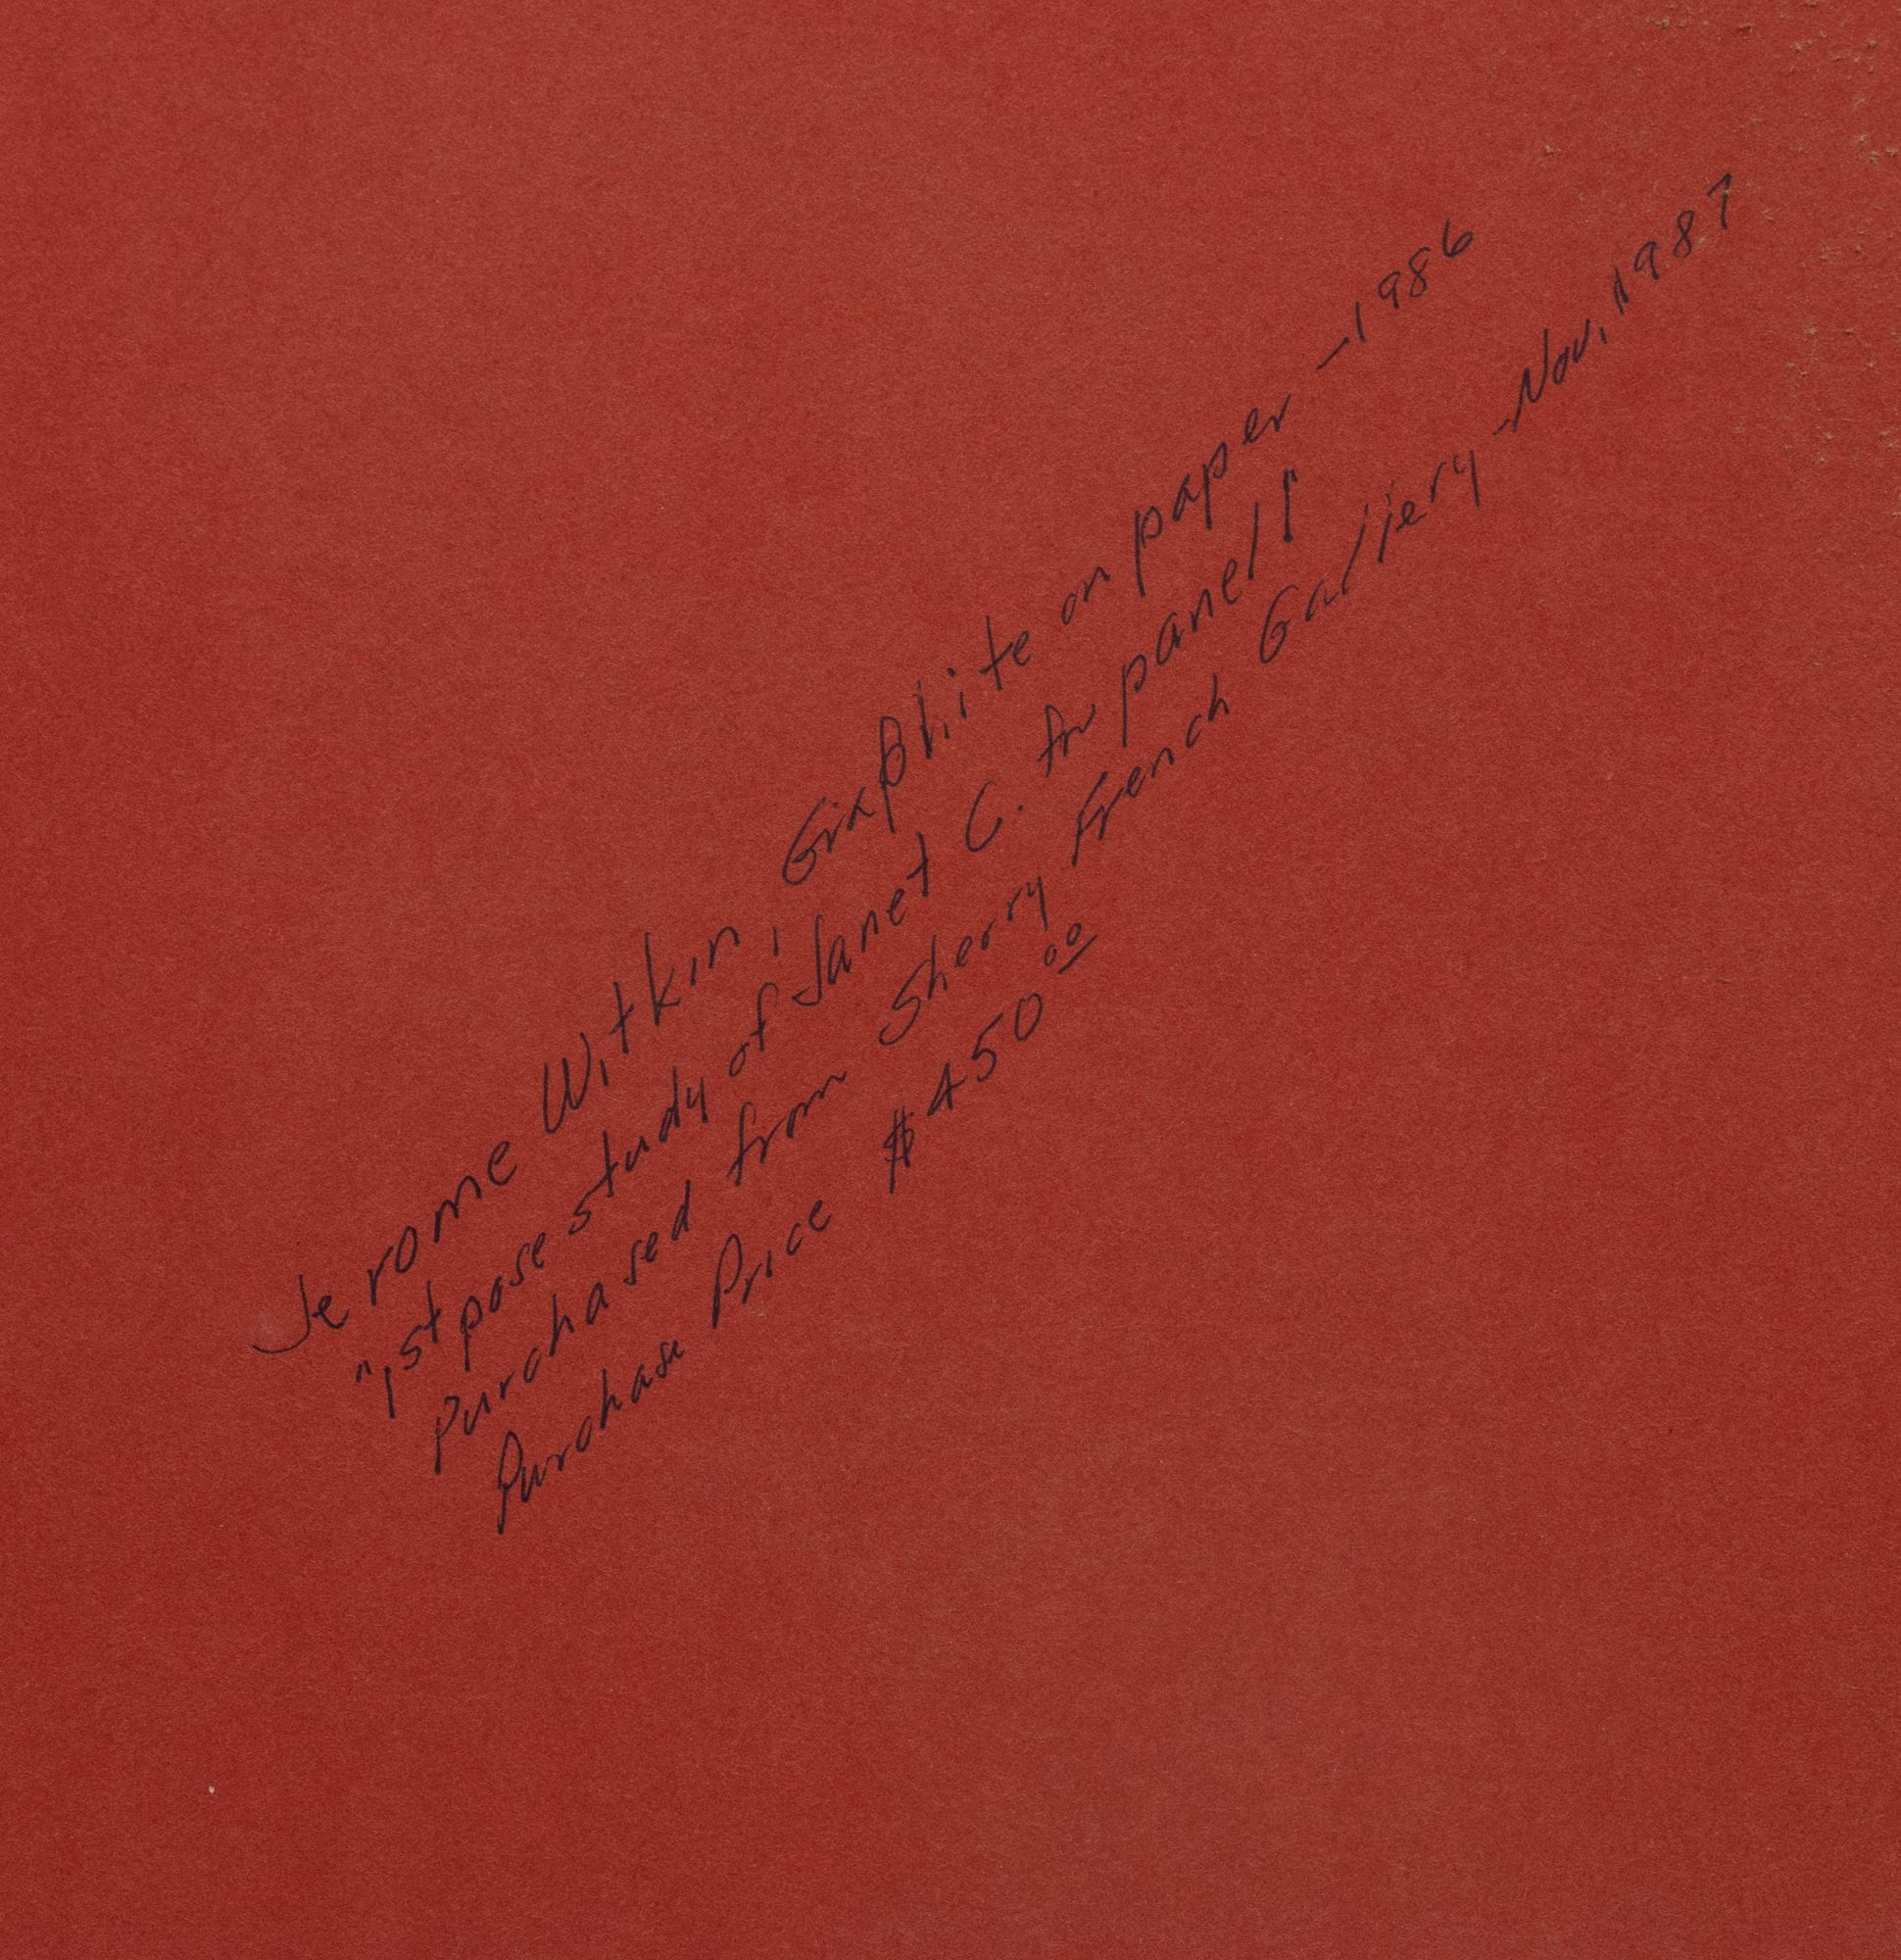 Jerome Witkin, Graphite on paper - 1986
"1st pose study of Janet C. for panel 1"
Purchased from Sherry French Gallery - Nov, 1987
Purchase Price $450 00